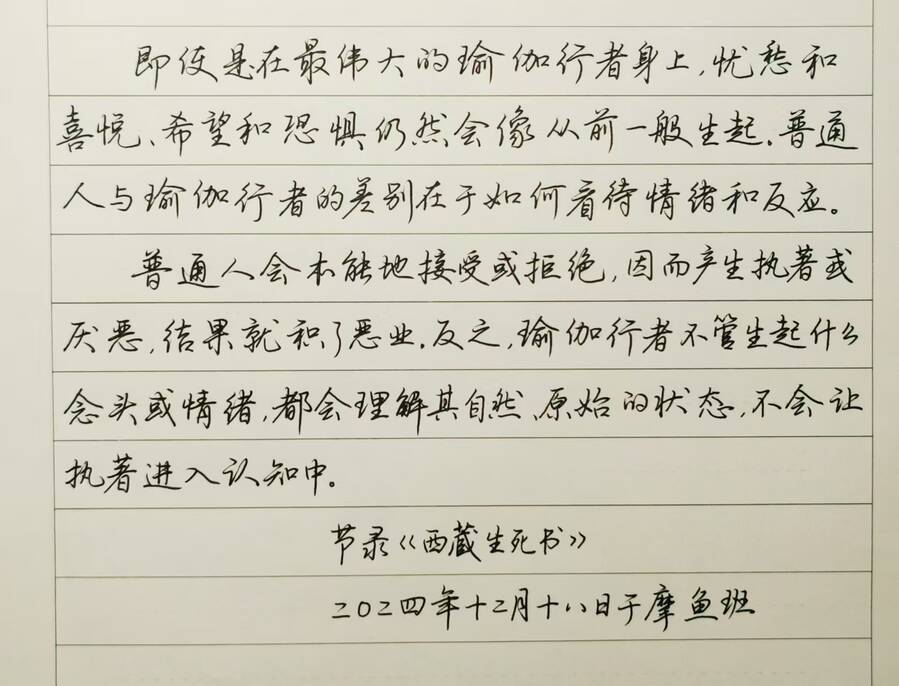 即使是在最伟大的瑜伽行者身上,忧愁和
喜悦、希望和恐惧仍然会像从前一般生起.普通
人与瑜伽行者的差别在于如何看待情绪和反应。
普通人会本能地接受或拒绝,因而产生执著或
厌恶,结果就积了恶业.反之,瑜伽行者不管生起什么
念头或情绪,都会理解其自然、原始的状态,不会让
执著进入认知中。
节录《西藏生死书》
二〇二四年十二月十八日于摩鱼班